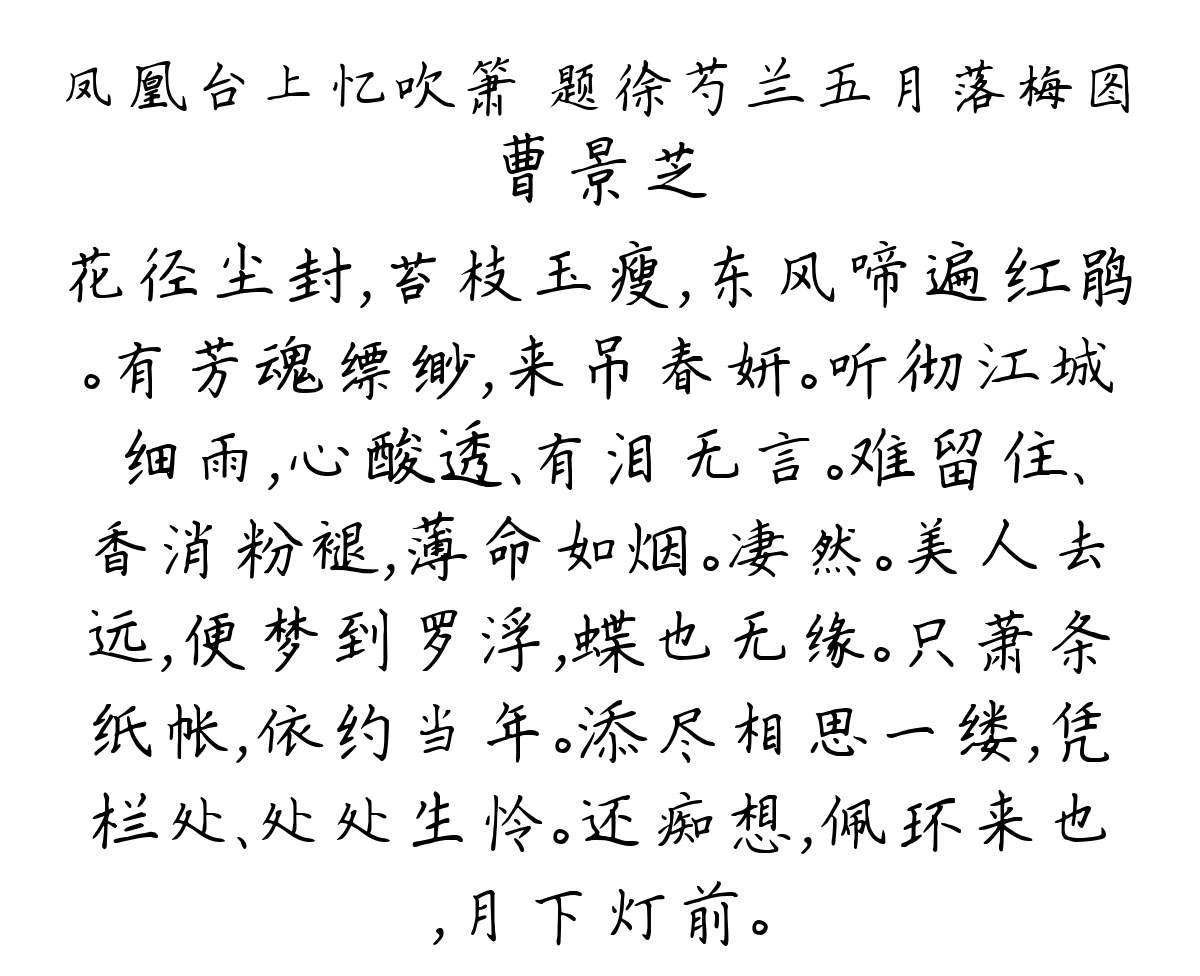 凤凰台上忆吹箫 题徐芍兰五月落梅图
曹景芝
花径尘封,苔枝玉瘦,东风啼遍红鹃
。有芳魂缥缈,来吊春妍。听彻江城
细雨,心酸透、有泪无言。难留住、
香消粉褪,薄命如烟。凄然。美人去
远,便梦到罗浮,蝶也无缘。只萧条
纸帐,依约当年。添尽相思一缕,凭
栏处、处处生怜。还痴想,佩环来也
,月下灯前。